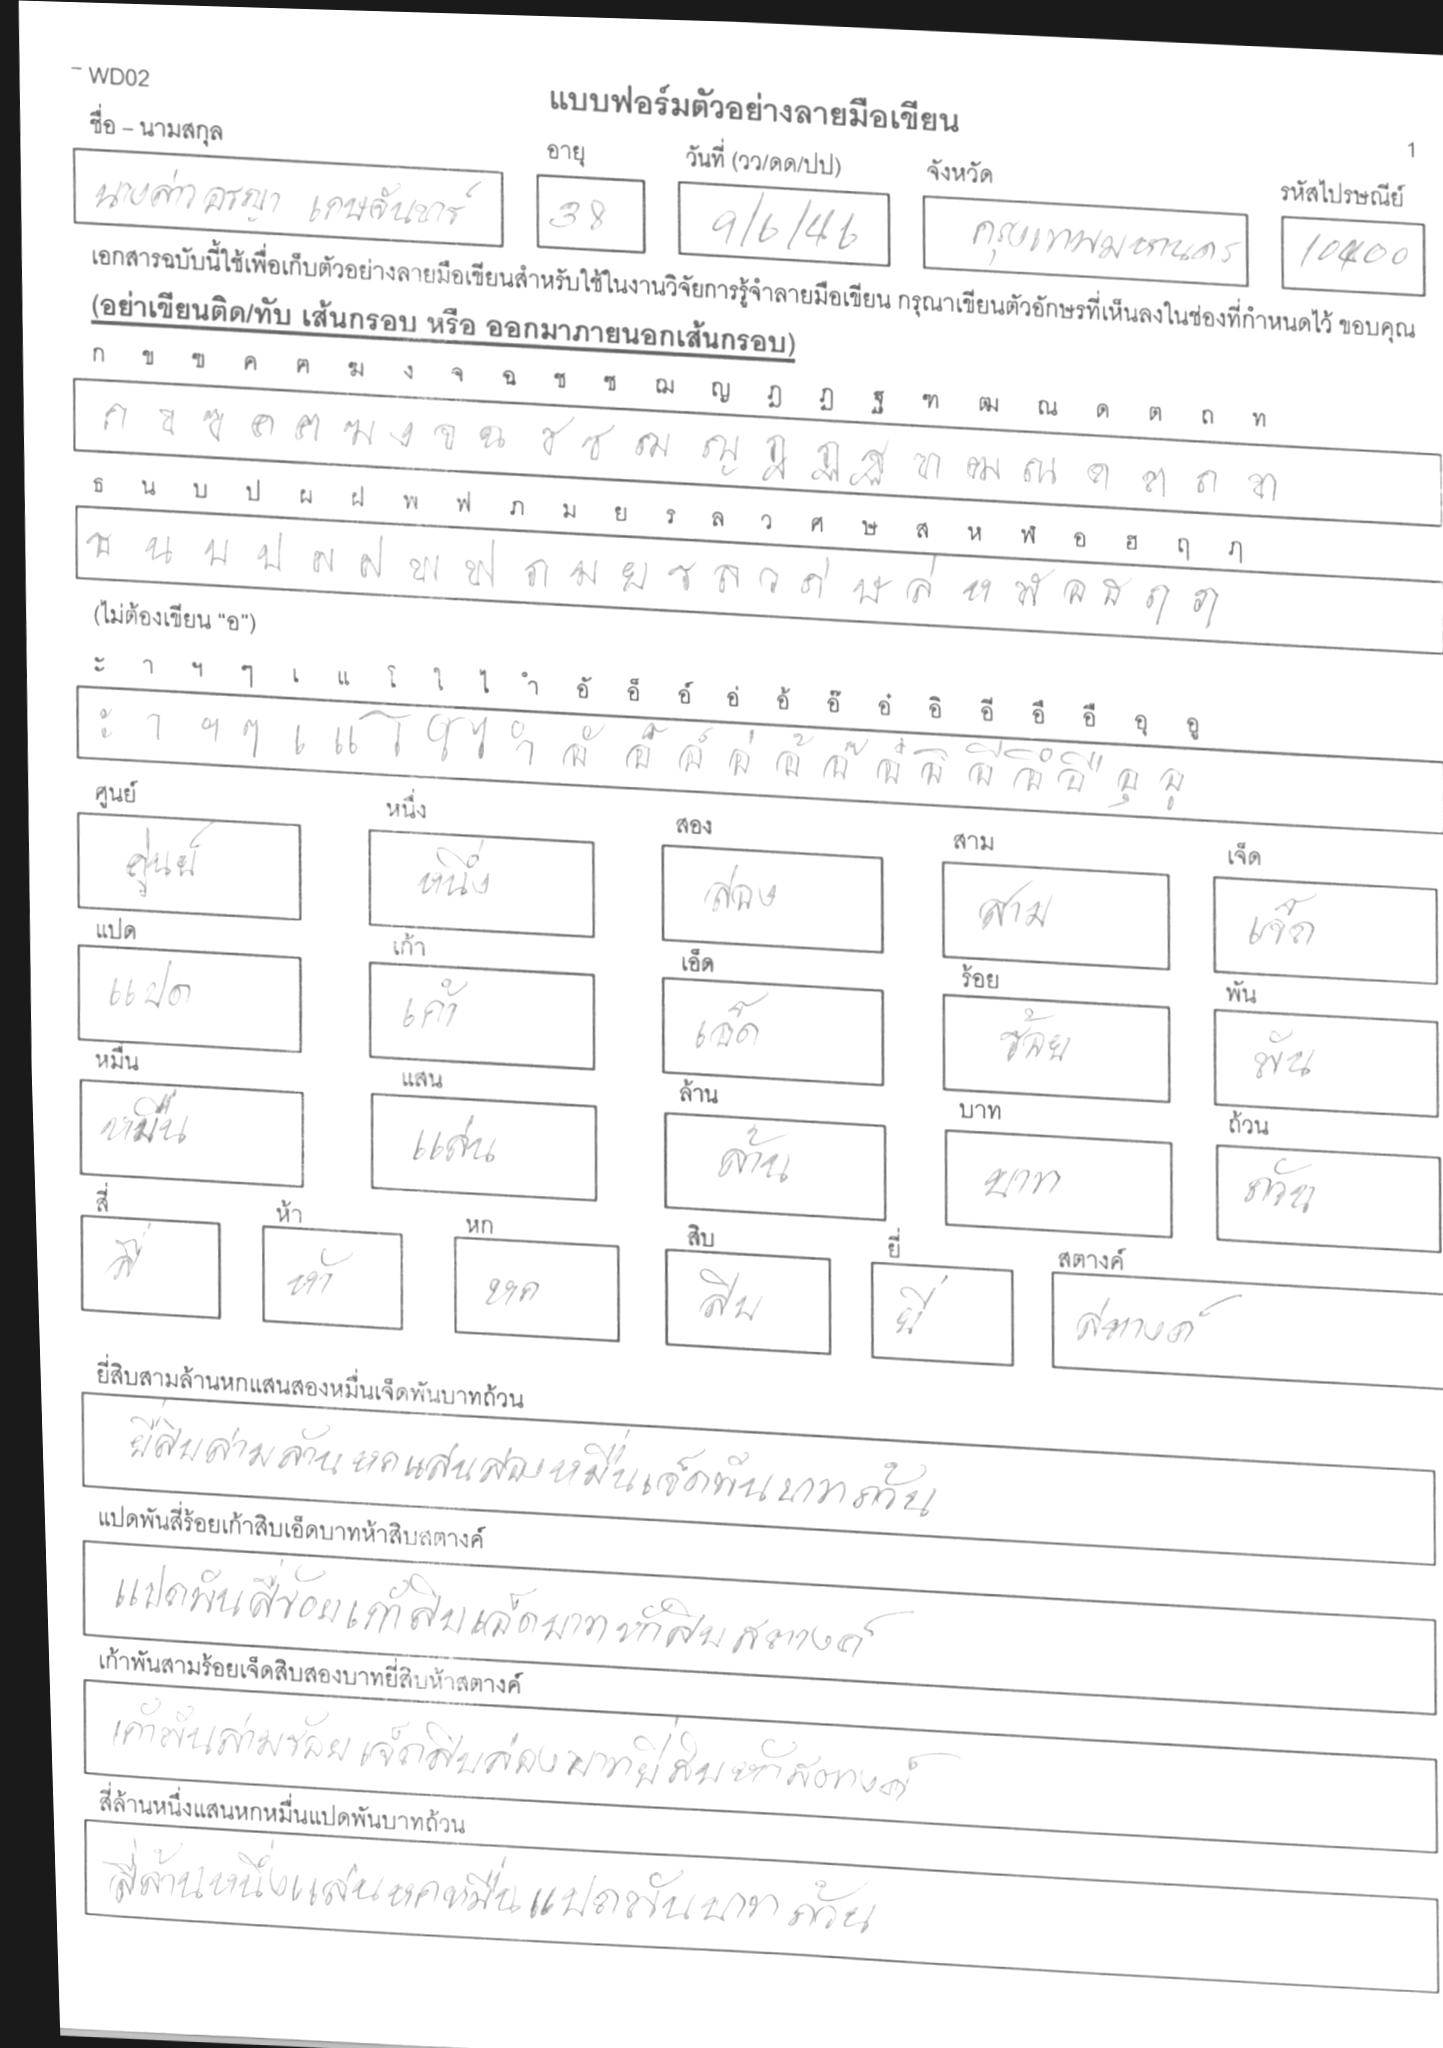 WD02
แบบฟอร์มตัวอย่างลายมือเขียน
1
ชื่อ – นามสกุล อายุ วันที่ (วว/ดด/ปป) จังหวัด รหัสไปรษณีย์
นางสาว อรญา 38 9/6/46 กรุงเทพมหานคร 10400
เอกสารฉบับนี้ใช้เพื่อเก็บตัวอย่างลายมือเขียนสำหรับใช้ในงานวิจัยการรู้จำลายมือเขียน กรุณาเขียนตัวอักษรที่เห็นลงในช่องที่กำหนดไว้ ขอบคุณ
(อย่าเขียนติด/ทับ เส้นกรอบ หรือ ออกมาภายนอกเส้นกรอบ)
ก ข ฃ ค ฅ ฆ ง จ ฉ ช ซ ฌ ญ ฎ ฏ ฐ ฑ ฒ ณ ด ต ถ ท
ก ข ฃ ค ฅ ฆ ง จ ฉ ช ซ ฌ ญ ฎ ฏ ฐ ฑ ฒ ณ ด ต ถ ท
ธ น บ ป ผ ฝ พ ฟ ภ ม ย ร ล ว ศ ษ ส ห ฬ อ ฮ ฤ ฦ
ธ น บ ป ผ ฝ พ ฟ ภ ม ย ร ล ว ศ ษ ส ห ฬ อ ฮ ฤ ฦ
(ไม่ต้องเขียน "อ")
ะ า ฯ ๆ เ แ โ ใ ไ ำ อั อ็ อ์ อ่ อ้ อ๊ อ๋ อิ อี อึ อื อุ อู
ะ า ฯ ๆ เ แ โ ใ ไ ำ อั อ็ อ์ อ่ อ้ อ๊ อ๋ อิ อี อึ อื อุ อู
ศูนย์ หนึ่ง สอง สาม เจ็ด
ศูนย์ หนึ่ง สอง สาม เจ็ด
แปด เก้า เอ็ด ร้อย พัน
แปด เก้า เอ็ด ร้อย พัน
หมื่น แสน ล้าน บาท ถ้วน
หมื่น แสน ล้าน บาท ถ้วน
สี่ ห้า หก สิบ ยี่ สตางค์
สี่ ห้า หก สิบ ยี่ สตางค์
ยี่สิบสามล้านหกแสนสองหมื่นเจ็ดพันบาทถ้วน
ยี่สิบสามล้านหกแสนสองหมื่นเจ็ดพันบาทถ้วน
แปดพันสี่ร้อยเก้าสิบเอ็ดบาทห้าสิบสตางค์
แปดพันสี่ร้อยเก้าสิบเอ็ดบาทห้าสิบสตางค์
เก้าพันสามร้อยเจ็ดสิบสองบาทยี่สิบห้าสตางค์
เก้าพันสามร้อยเจ็ดสิบสองบาทยี่สิบห้าสตางค์
สี่ล้านหนึ่งแสนหกหมื่นแปดพันบาทถ้วน
สี่ล้านหนึ่งแสนหกหมื่นแปดพันบาทถ้วน